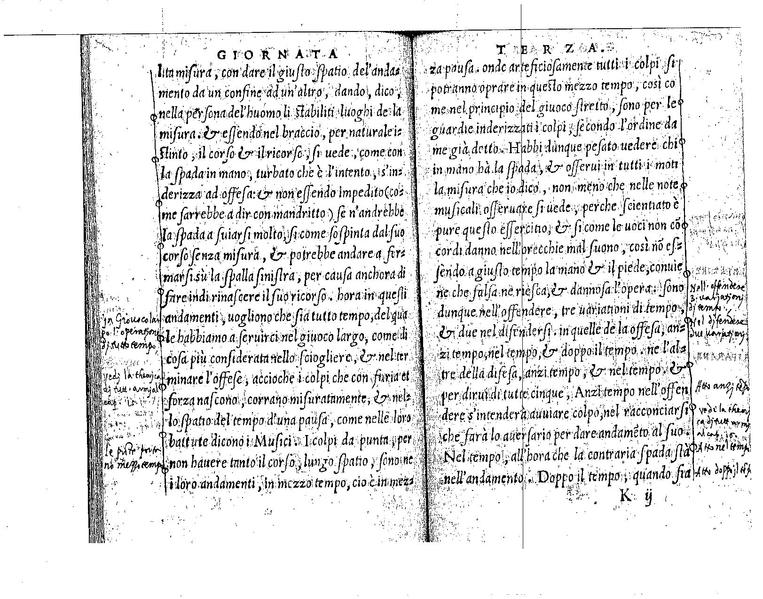 GIORNATA
lita misura, con dare il giusto spatio del'anda-
mento da un confine ad un'altro, dando, dico,
nella persona del'huomo li stabiliti luoghi de la
misura. & essendo nel braccio, per naturale i-
stinto, il corso & il ricorso, si uede, come con
la spada in mano, turbato che è l'intento, s'in-
derizza ad offesa: & non essendo impedito (co-
me sarrebbe a dir con mandritto) se n'andrebbe
la spada a suiarsi molto, si come sospinta dal suo
corso senza misura, & potrebbe andare a fer-
marsi sù la spalla sinistra, per causa anchora di
fare indi rinascere il suo ricorso. hora in questi
andamenti, uogliono che sia tutto tempo, del qua
le habbiamo a seruirci nel giuoco largo, come di
cosa più considerata nello sciogliere, & nel ter
minare l'offese, accioche i colpi che con furia et
forza nascono, corrano misuratamente, & nel-
lo spatio del tempo d'una pausa, come nelle loro
battute dicono i Musici. I colpi da punta, per
non hauere tanto il corso, lungo spatio, sono ne
i loro andamenti, in mezzo tempo, cio è in mez-
in Giuoco lar
go l'operationi
di tutto tempo
le punte
no mezzo tempo
TERZA.
za pausa. onde arteficiosamente tutti i colpi si
potranno oprare in questo mezzo tempo, così co
me nel principio del giuoco stretto, sono per le
guardie inderizzati i colpi, secondo l'ordine da
me già detto. Habbi dunque pesato uedere chi
in mano hà la spada, & osserui in tutti i moti
la misura che io dico, non meno che nelle note
musicali osseruare si uede, perche scientiato è
pure questo essercitio, & si come le uoci non cō
cordi danno nell'orecchie mal suono, così nō es-
sendo a giusto tempo la mano & il piede, conuie
ne che falsa ne riesca, & dannosa l'opera: sono
dunque nell'offendere, tre uariationi di tempo,
& due nel difendersi. in quelle de la offesa, an-
zi tempo, nel tempo, & doppo il tempo. ne l'al-
tre della difesa, anzi tempo, & nel tempo, &
per dirui di tutte cinque, Anzi tempo nell'offen
dere s'intenderà auuiare colpo, nel racconciarsi
che farà lo auersario per dare andamēto al suo
Nel tempo, all'hora che la contraria spada stà
nell'andamento. Doppo il tempo, quando sia
K ij
Nell' offendere
3 uariationi
di tempo
Nel difendere
due uariationi